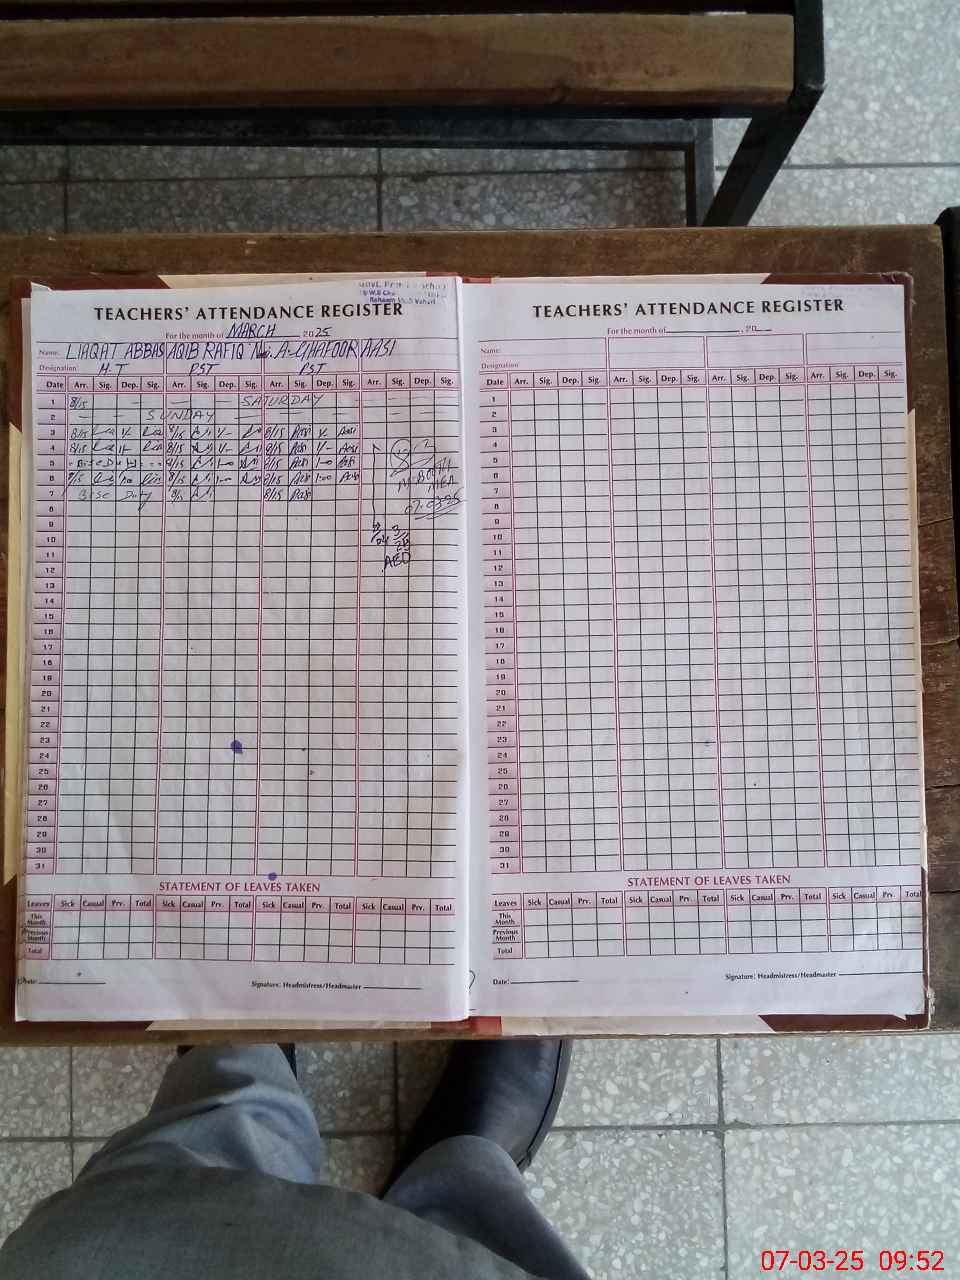 TEACHERS' ATTENDANCE REGISTER
For the month of MARCH 2025
Name: LIAQAT ABBAS AQIB RAFIQ A. GHAFOOR AASI
Designation H.T PST PST
Date Arr. Sig. Dep. Sig. Arr. Sig. Dep. Sig. Arr. Sig. Dep. Sig. Arr. Sig. Dep. Sig.
1 8/15 — SATURDAY —
2 — SUNDAY —
3 8/15 8/15 8/15 Aasi
4 8/15 8/15 8/15 Aasi
5 8/15 8/15 1-00
6 8/15 8/15 8/15 1-00
7 Bise Duty 8/15 8/15
8
9
10
11
12
13
14
15
16
17
18
19
20
21
22
23
24
25
26
27
28
29
30
31
MEA
07-03-25
AEO
STATEMENT OF LEAVES TAKEN
Leaves Sick Casual Prv. Total Sick Casual Prv. Total Sick Casual Prv. Total Sick Casual Prv. Total
This Month
Previous Month
Total
Date:
Signature: Headmistress/Headmaster
TEACHERS' ATTENDANCE REGISTER
For the month of , 20
Name:
Designation:
Date Arr. Sig. Dep. Sig. Arr. Sig. Dep. Sig. Arr. Sig. Dep. Sig. Arr. Sig. Dep. Sig.
1
2
3
4
5
6
7
8
9
10
11
12
13
14
15
16
17
18
19
20
21
22
23
24
25
26
27
28
29
30
31
STATEMENT OF LEAVES TAKEN
Leaves Sick Casual Prv. Total Sick Casual Prv. Total Sick Casual Prv. Total Sick Casual Prv. Total
This Month
Previous Month
Total
Date:
Signature: Headmistress/Headmaster
07-03-25 09:52